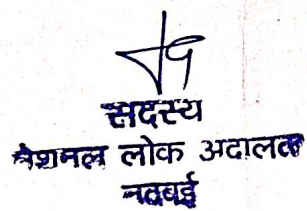 सदस्य
नेशनल लोक अदालत
नदबई